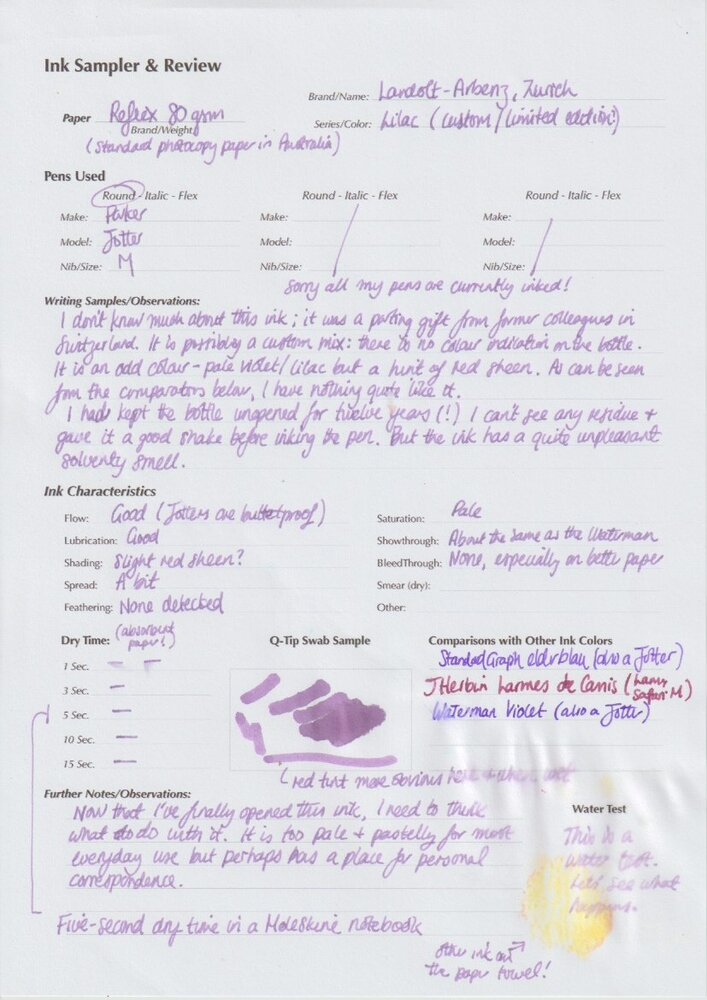 Ink Sampler & Review
Brand/Name: Landolt-Arbenz, Zurich
Paper Reflex 80 gsm
Brand/Weight
Series/Color: Lilac (custom/limited edition?)
(Standard photocopy paper in Australia)
Pens Used
Round - Italic - Flex Round - Italic - Flex Round - Italic - Flex
Make: Parker Make: Make:
Model: Jotter Model: Model:
Nib/Size: M Nib/Size: Nib/Size:
Sorry all my pens are currently inked!
Writing Samples/Observations:
I don't know much about this ink; it was a parting gift from former colleagues in
Switzerland. It is possibly a custom mix: there is no colour indication on the bottle.
It is an odd colour - pale violet/lilac but a hint of red sheen. As can be seen
from the comparators below, I have nothing quite like it.
I had kept the bottle unopened for twelve years (!) I can't see any residue +
gave it a good shake before inking the pen. But the ink has a quite unpleasant
solventy smell.
Ink Characteristics
Flow: Good (Jotters are bulletproof) Saturation: Pale
Lubrication: Good Showthrough: About the same as the Waterman
Shading: Slight red sheen? BleedThrough: None, especially on better paper
Spread: A bit Smear (dry):
Feathering: None detected Other:
Dry Time: (absorbent paper!) Q-Tip Swab Sample Comparisons with Other Ink Colors
1 Sec. StandardGraph (also a Jotter)
3 Sec. JHerbin Larmes de Cassis (Lamy Safari M)
5 Sec. Waterman Violet (also a Jotter)
10 Sec.
15 Sec.
red tint more obvious here + when wet
Further Notes/Observations: Water Test
Now that I've finally opened this ink, I need to think
what to do with it. It is too pale + pastelly for most
everyday use but perhaps has a place for personal
correspondence.
This is a
water test.
Let's see what
happens.
Five-second dry time in a Moleskine notebook
other ink on
the paper towel!